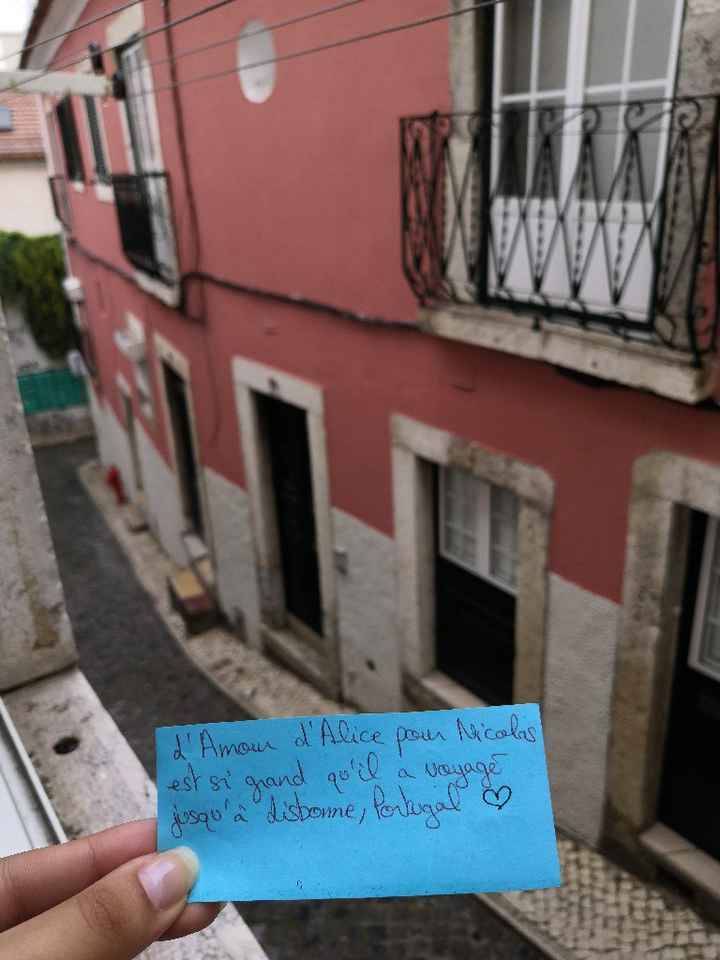 L'Amour d'Alice pour Nicolas
est si grand qu'il a voyagé
jusqu'à Lisbonne, Portugal ♡